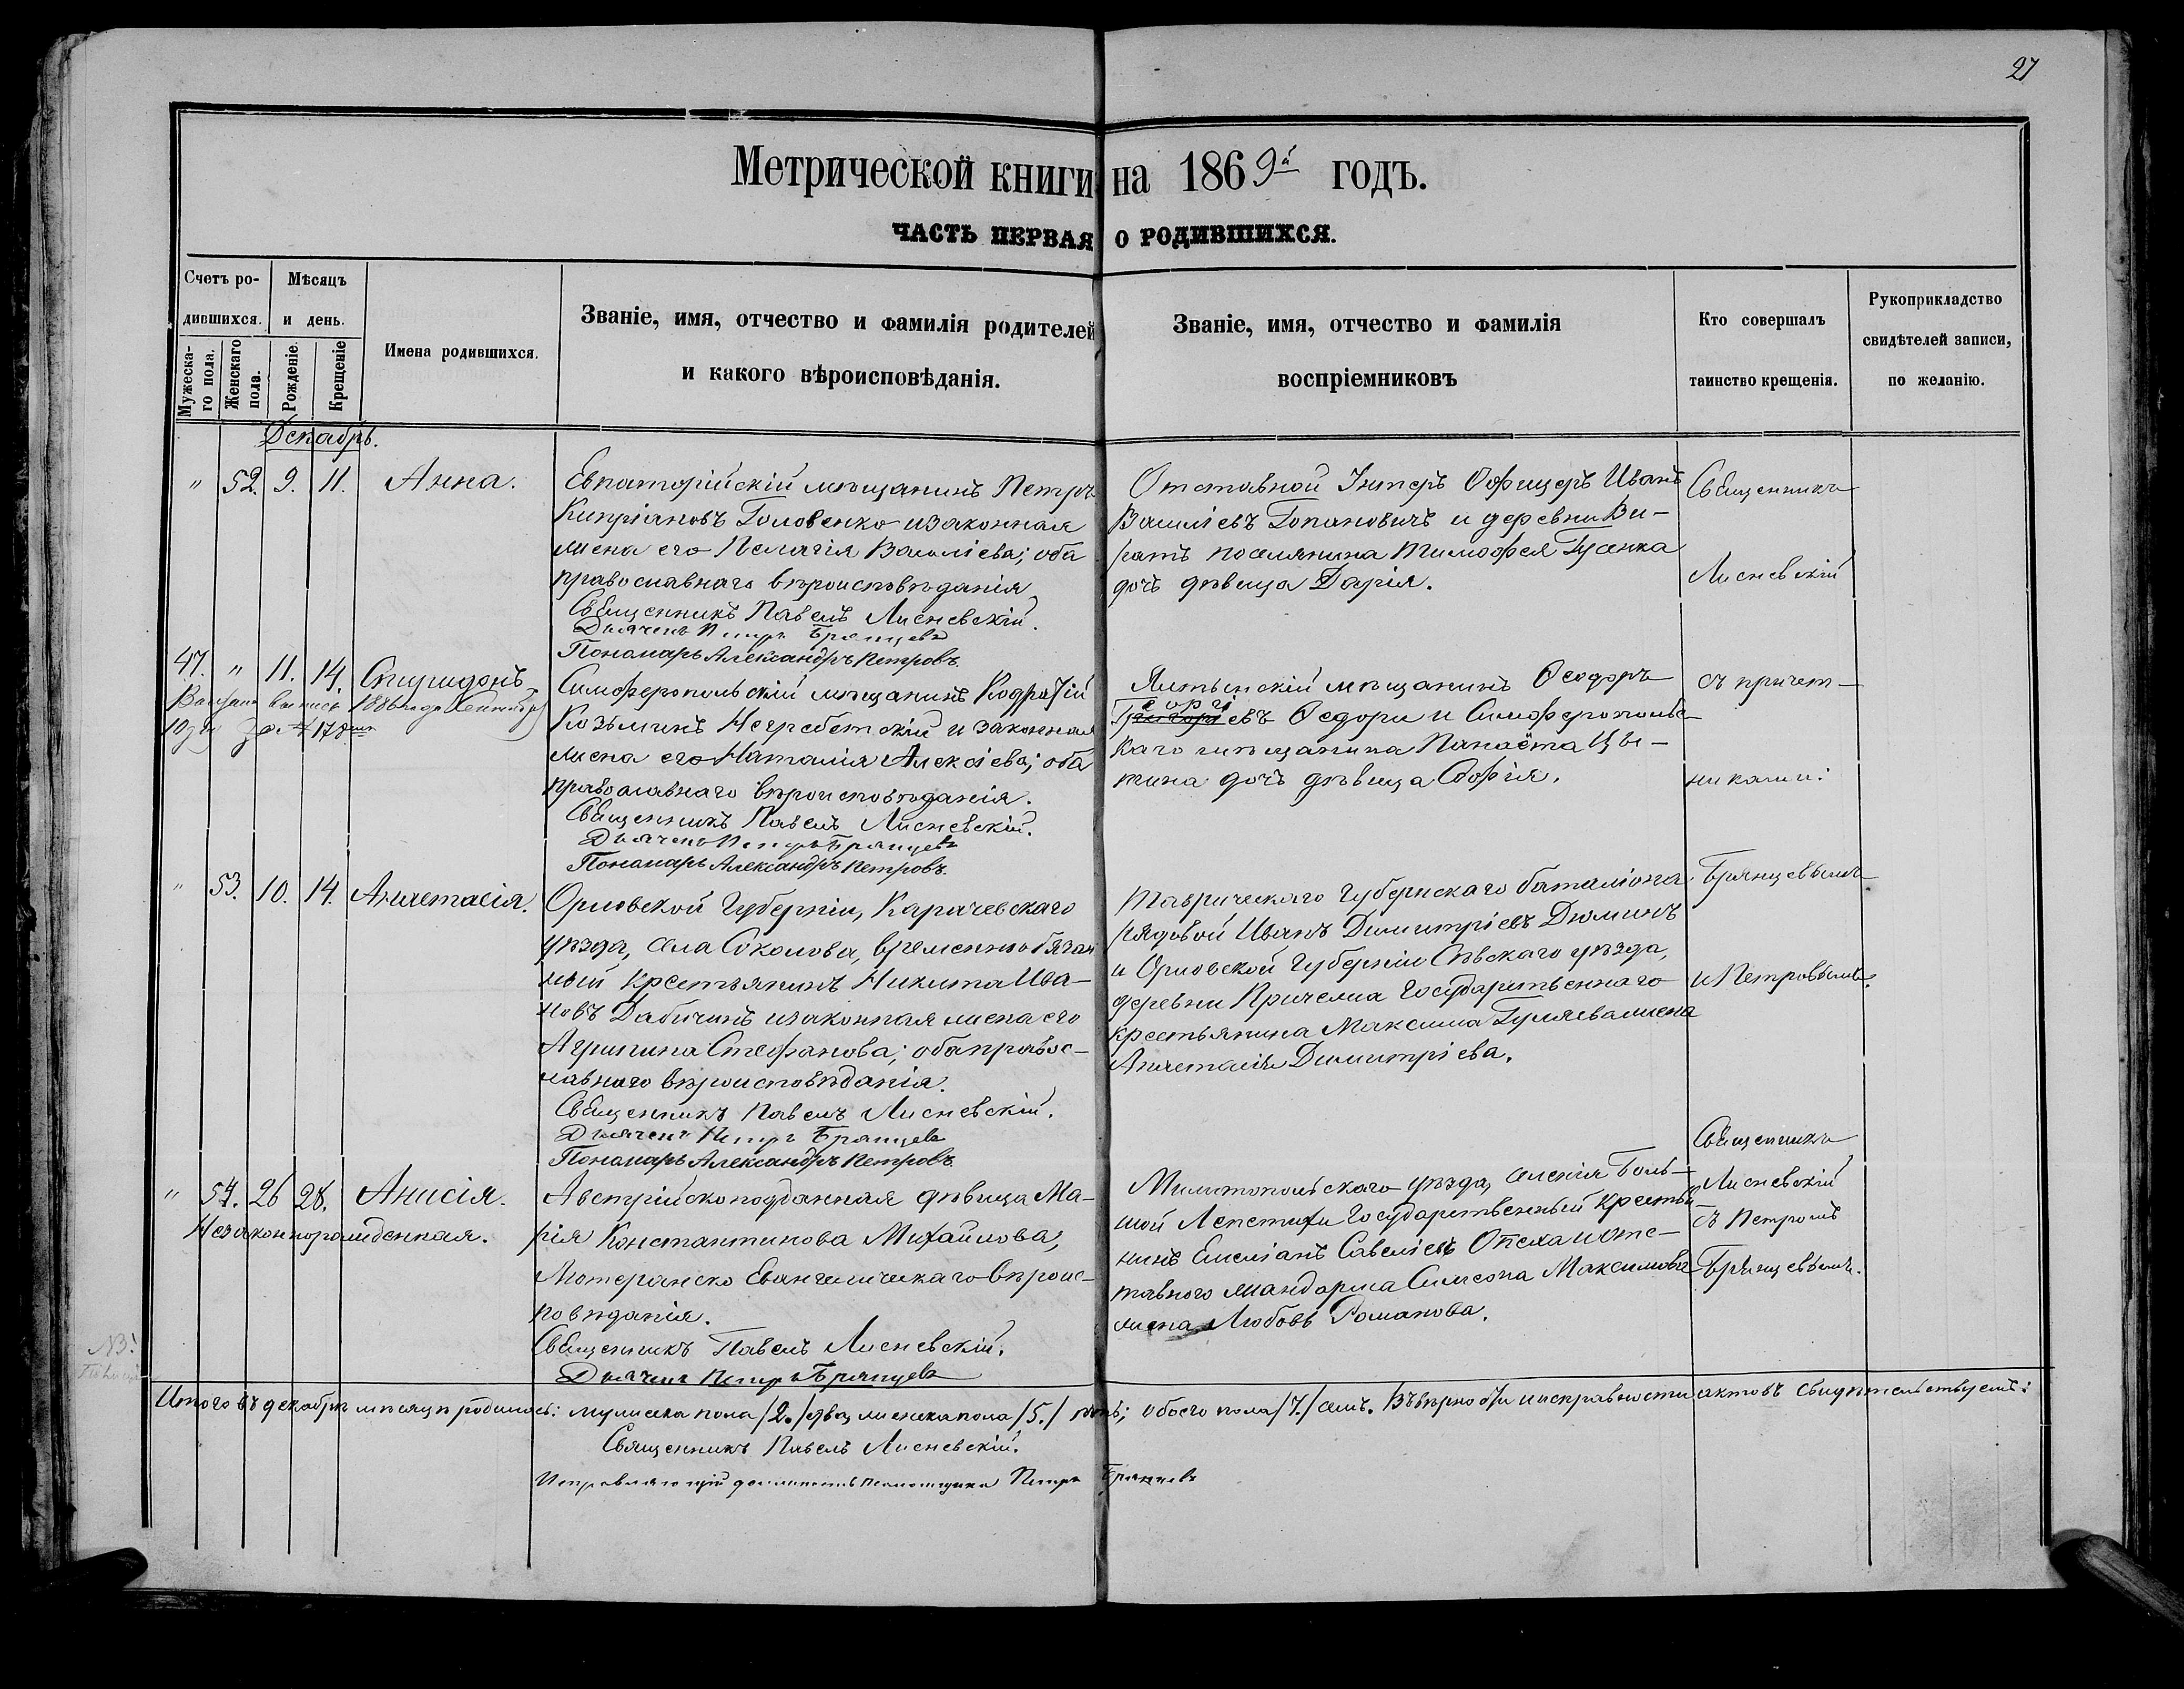 27
Метрической книги на 1869й годъ.
ЧАСТЬ ПЕРВАЯ О РОДИВШИХСЯ.
Счетъ родившихся.
Мужескаго пола.
Женскаго пола.
Мѣсяцъ и день.
Рожденіе.
Крещеніе
Имена родившихся.
Званіе, имя, отчество и фамилія родителей
и какого вѣроисповѣданія.
Званіе, имя, отчество и фамилія
воспріемниковъ
Кто совершалъ
таинство крещенія.
Рукоприкладство
свидѣтелей записи,
по желанію.
Декабрь.
" 52. 9. 11. Анна.
Евпаторійскій мѣщанинъ Петръ
Кипріановъ Головенко и законная
жена его Пелагія Васильева; оба
православнаго вѣроисповѣданія
Священникъ Павелъ Лисневскій.
Дьячекъ Петръ Брянцевъ
Пономарь Александръ Петровъ
Отставной Унтеръ Офицеръ Иванъ
Василіевъ Гопановичъ и деревни Би-
рать поселянина Тимофея Гусенка
дочь дѣвица Дарія.
Священникъ
Лисневскій
47. " 11. 14. Спиридонъ.
1886 года Сентября
10 дня за № 178
Симферопольскій мѣщанинъ Кодратій
Козьминъ Негребетскій и законная
жена его Наталія Алексіева; оба
православнаго вѣроисповѣданія.
Священникъ Павелъ Лисневскій.
Дьячекъ Петръ Брянцевъ
Пономарь Александръ Петровъ
Ялтынскій мѣщанинъ Ѳеодоръ
еоргі
Григоріевъ Ѳедори и Симферопольс-
каго мѣщанина Панаёта Цы-
тина дочь дѣвица Софія.
съ причет-
никами:
" 53. 10. 14. Анастасія.
Орловской Губерніи, Карачевскаго
уѣзда, села Соколова, временнообязан
ный крестьянинъ Никита Ива-
новъ Дабичинъ и законная жена его
Агрипина Стефанова; оба правос-
лавнаго вѣроисповѣданія.
Священникъ Павелъ Лисневскій.
Дьячекъ Петръ Брянцевъ
Пономарь Александръ Петровъ
Таврическаго Губернскаго баталіона
рядовой Иванъ Димитріевъ Дюминъ
и Орловской Губерніи Сѣвскаго уѣзда,
деревни Государственнаго
крестьянина Максима Гуляева жена
Анастасія Димитріева.
Брянцевымъ
и Петровымъ.
" 54. 26 28. Анисія.
Незаконнорожденная.
Австрійскоподданная дѣвица Ма-
рія Константинова Михайлова,
Лютеранско Евангелическаго вѣроис-
повѣданія.
Священникъ Павелъ Лисневскій.
Дьячекъ Петръ Брянцевъ
Мелитопольскаго уѣзда, селенія Боль-
шой Лепетихи Государственный крестья
нинъ Емеліанъ Савеліевъ и отс-
тавного жандарма Симеона Максимова
жена Любовь Романова.
Священникъ
Лисневскій
съ Петромъ
Брянцевымъ.
NB!
Итого въ декабрѣ мѣсяцѣ родилось: мужеска пола /2./ два, женска пола /5./ пять; обоего пола /7./ семь. Въ вѣрности и исправности актовъ свидѣтельствуемъ:
Священникъ Павелъ Лисневскій.
Исправляющій должность псаломщика Петръ Брянцевъ